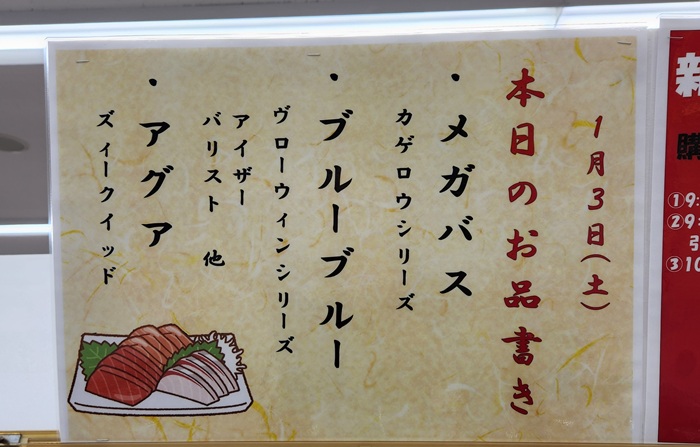 1月3日(土)
本日のお品書き
・メガバス
カゲロウシリーズ
・ブルーブルー
ヴローウィンシリーズ
アイザー
バリスト 他
・アグア
ズィークイッド
新
購
①9:
②9:
引
③10